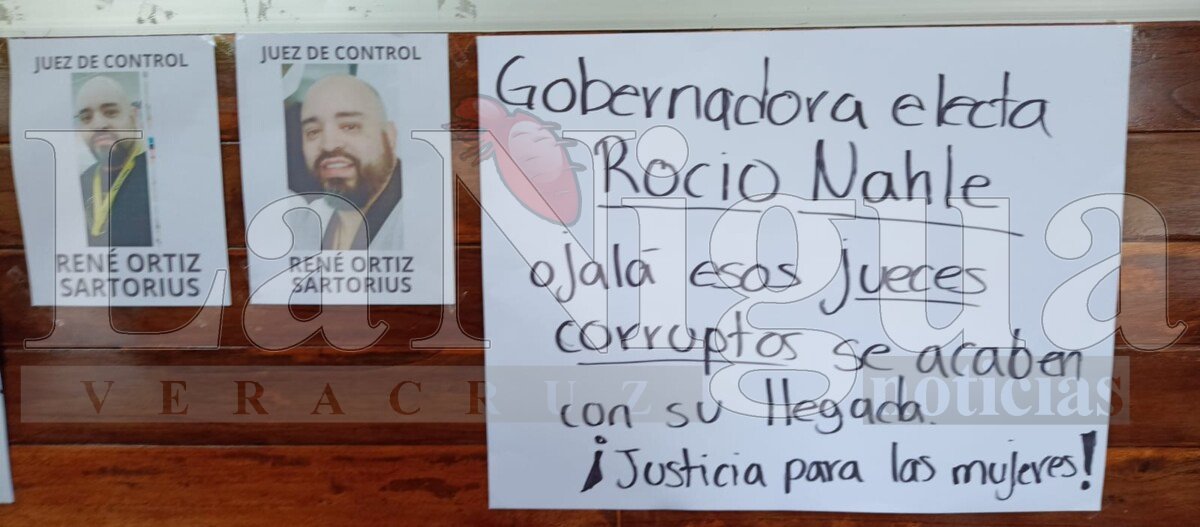 JUEZ DE CONTROL
RENÉ ORTIZ
SARTORIUS
JUEZ DE CONTROL
RENÉ ORTIZ
SARTORIUS
Gobernadora electa
Rocio Nahle
ojalá esos jueces
corruptos se acaben
con su llegada.
¡Justicia para las mujeres!
La Nigua
VERACRUZ noticias